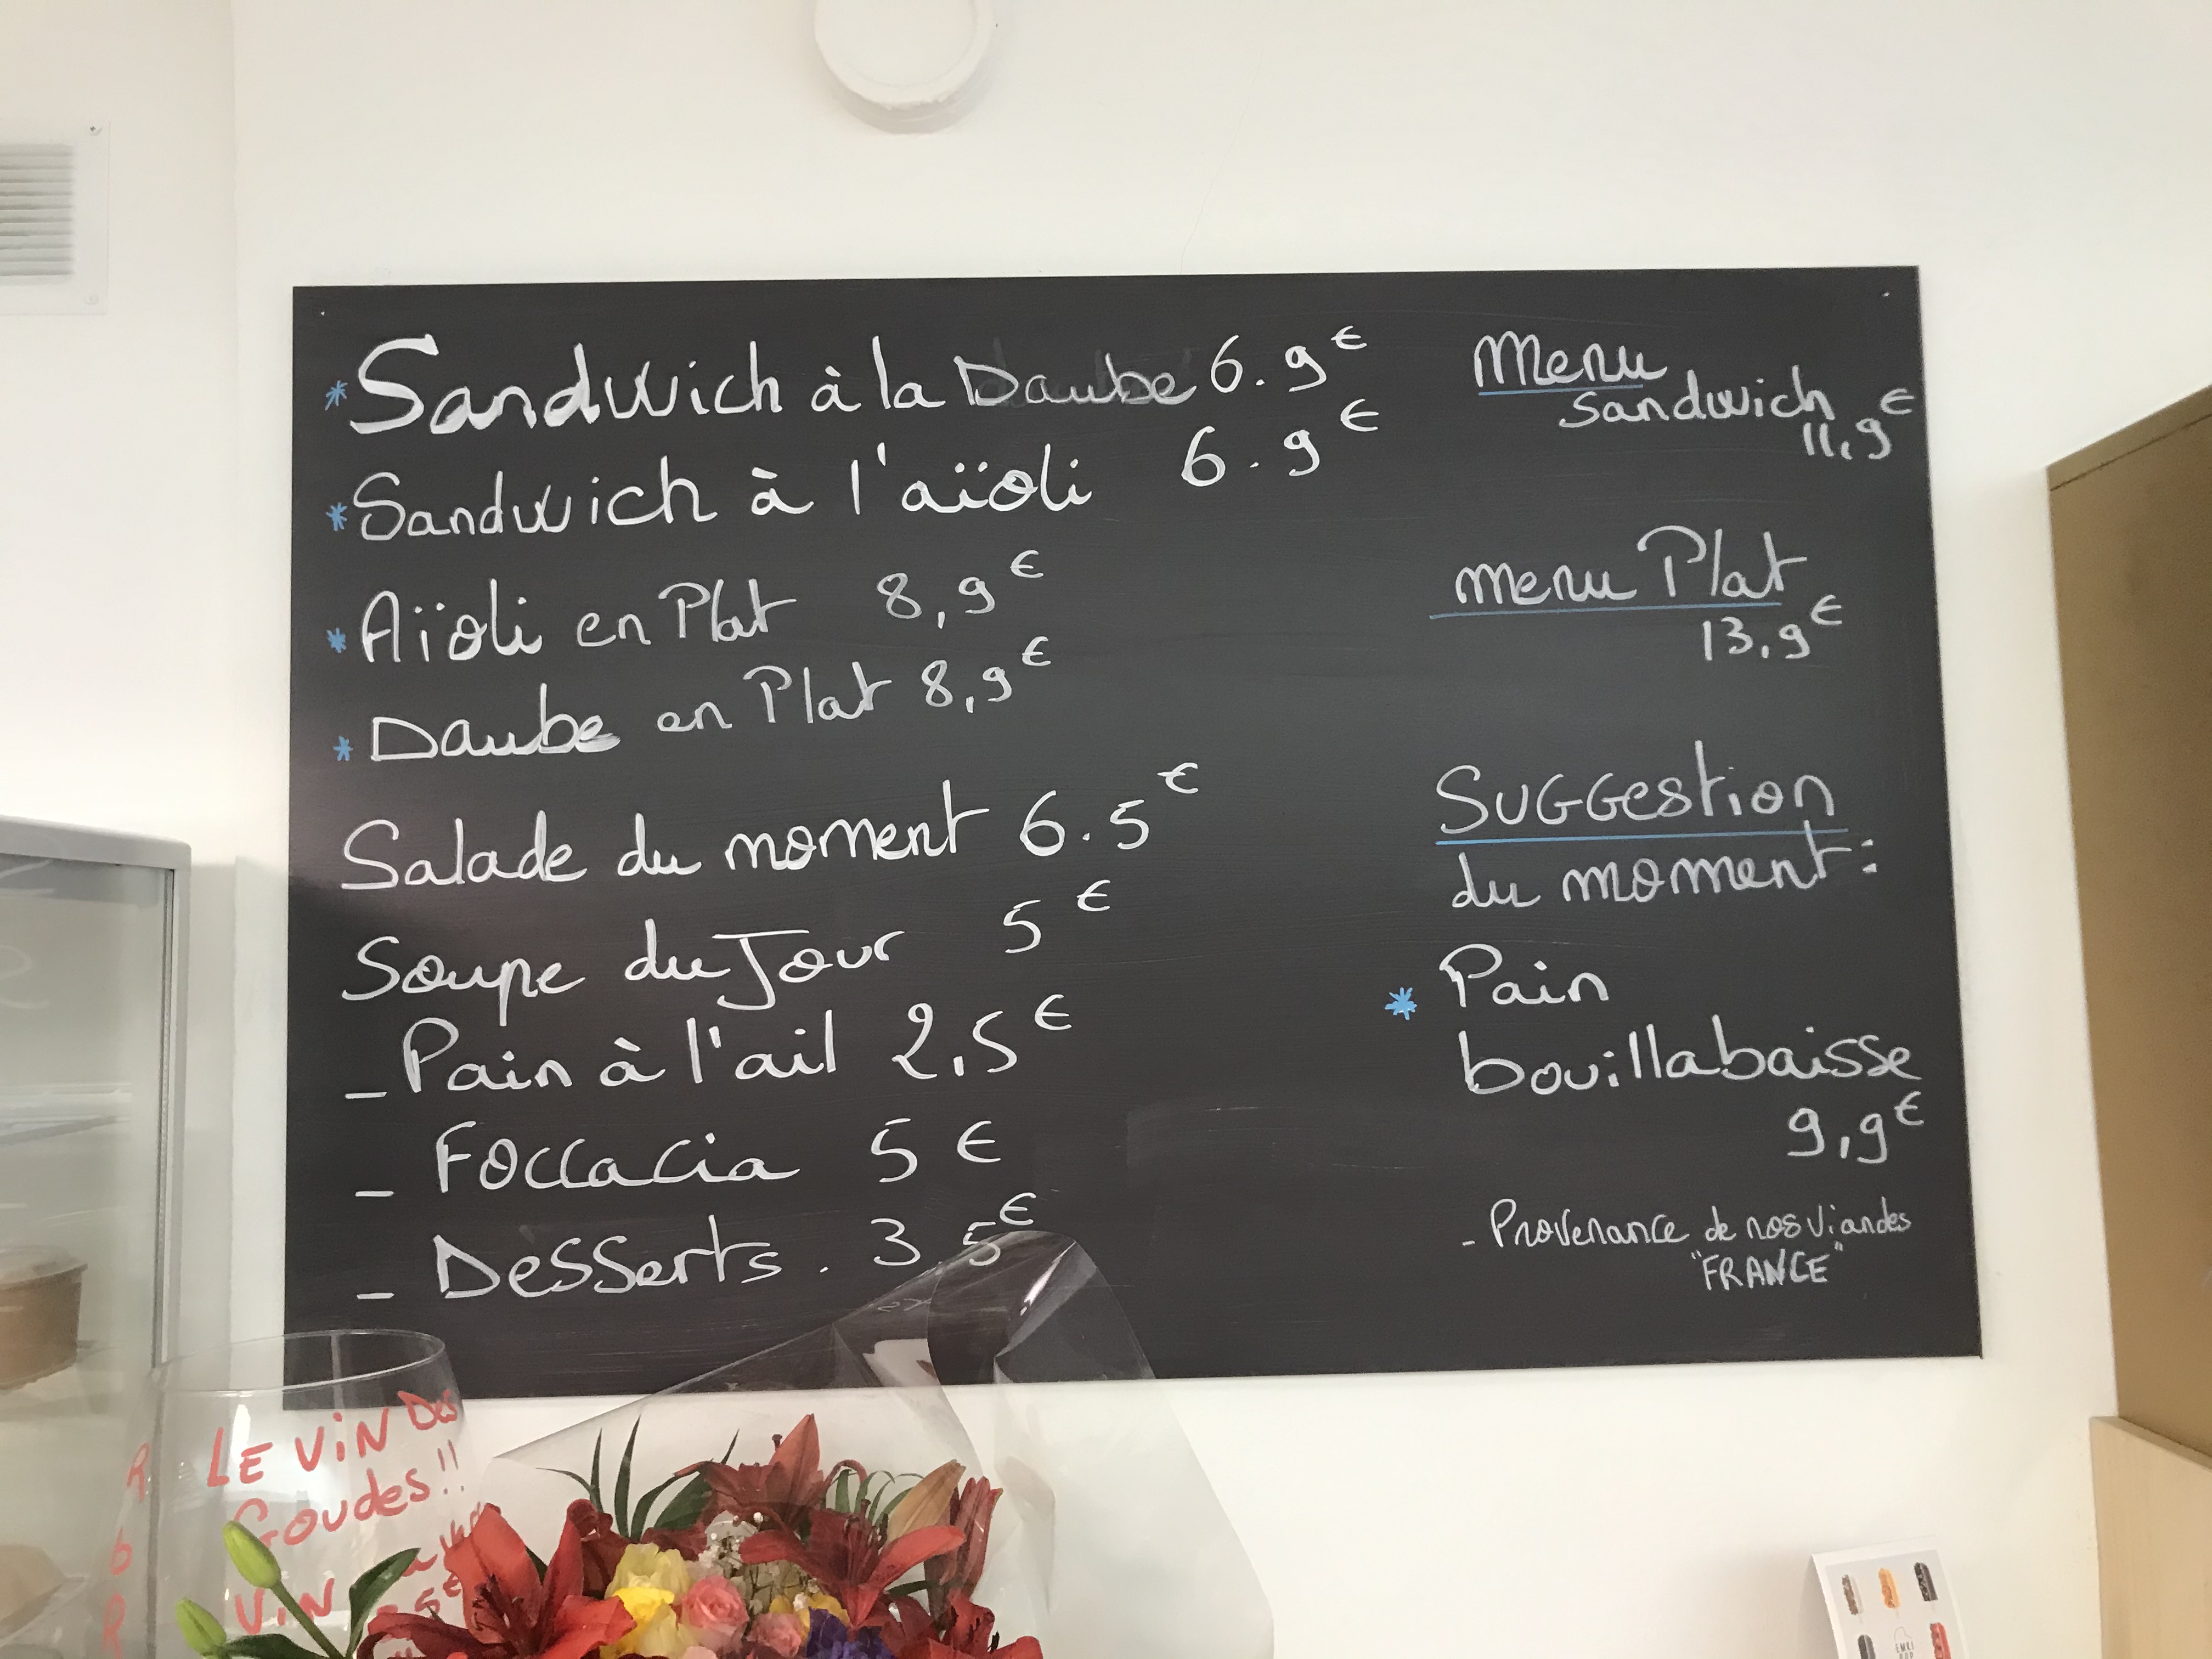 * Sandwich à la Daube 6.9€
* Sandwich à l'aïoli 6.9€
* Aïoli en Plat 8,9€
* Daube en Plat 8,9€
Salade du moment 6.5€
Soupe du Jour 5€
- Pain à l'ail 2,5€
- Foccacia 5€
- Desserts. 3,5€
Menu
Sandwich
11,9€
menu Plat
13,9€
SUGGestion
du moment:
* Pain
bouillabaisse
9,9€
- Provenance de nos viandes
"FRANCE"
LE ViN Des
Goudes!!
ViN
EMKI
POP